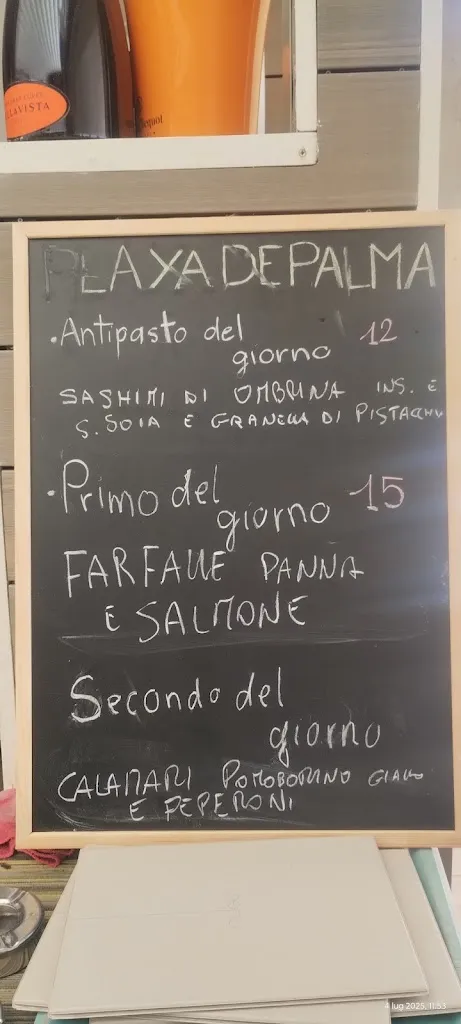 LAVISTA
PLAYA DE PALMA
• Antipasto del
giorno 12
SASHIMI DI OMBRINA INS. E
S. SOIA E GRANELLA DI PISTACCHI
• Primo del
giorno 15
FARFALLE PANNA
E SALMONE
Secondo del
giorno
CALAMARI POMODORINO GIALLO
E PEPERONI
4 lug 2025, 11:53